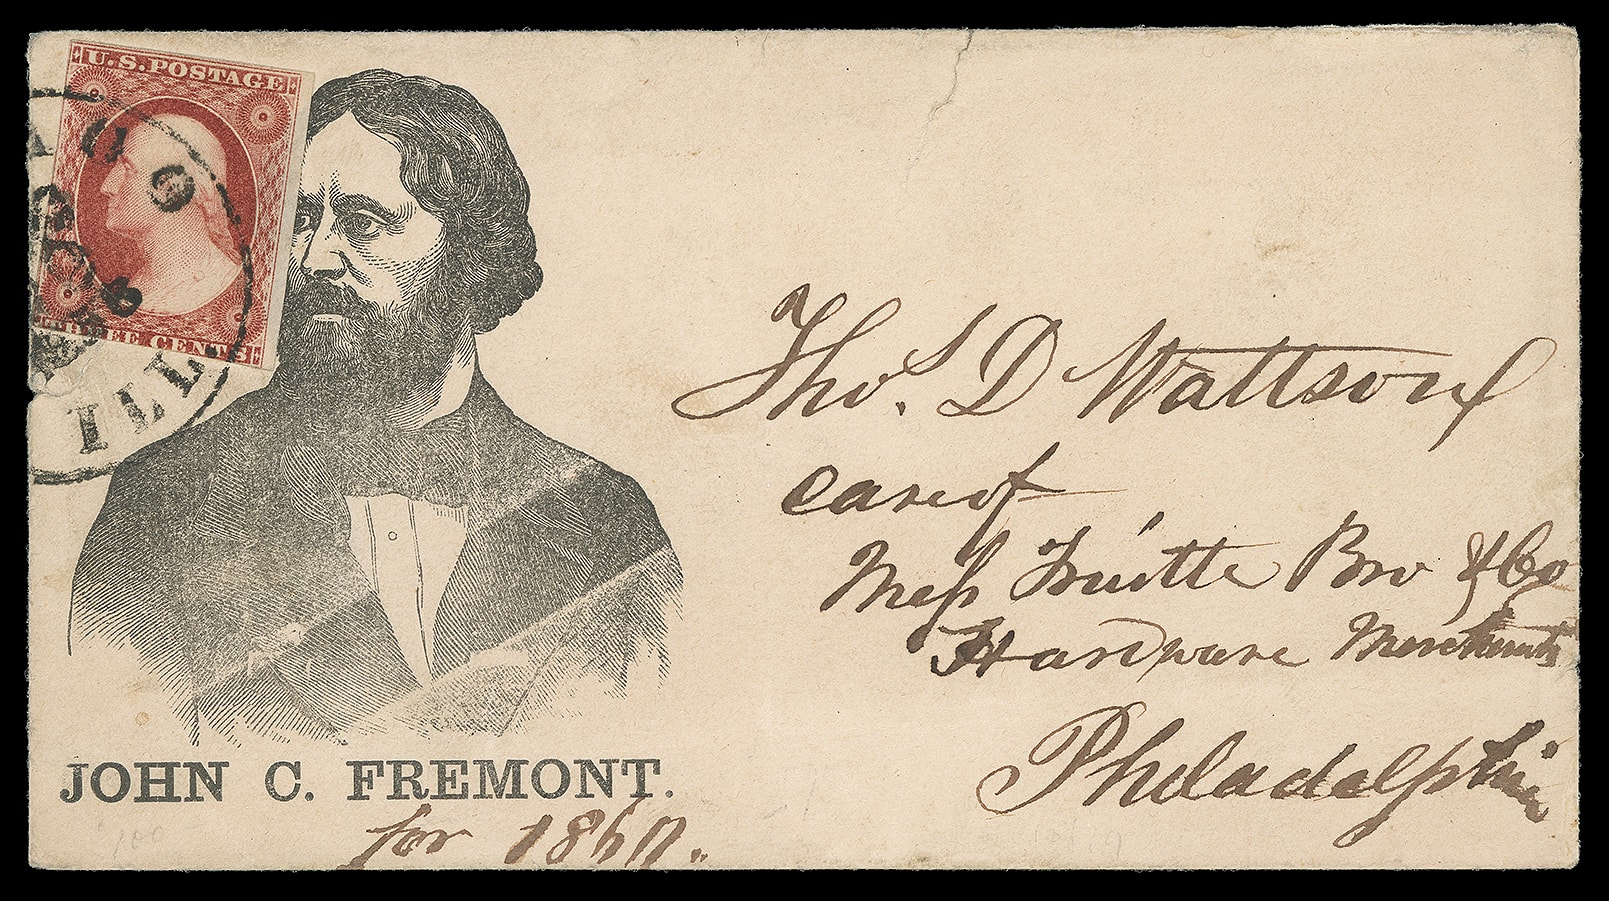 U.S. POSTAGE
THREE CENTS
AGO
ILL.
JOHN C. FREMONT.
for 1860.
Thos. D Wattson
care of
Mess Truitte Bro & Co
Hardware Merchants
Philadelphia